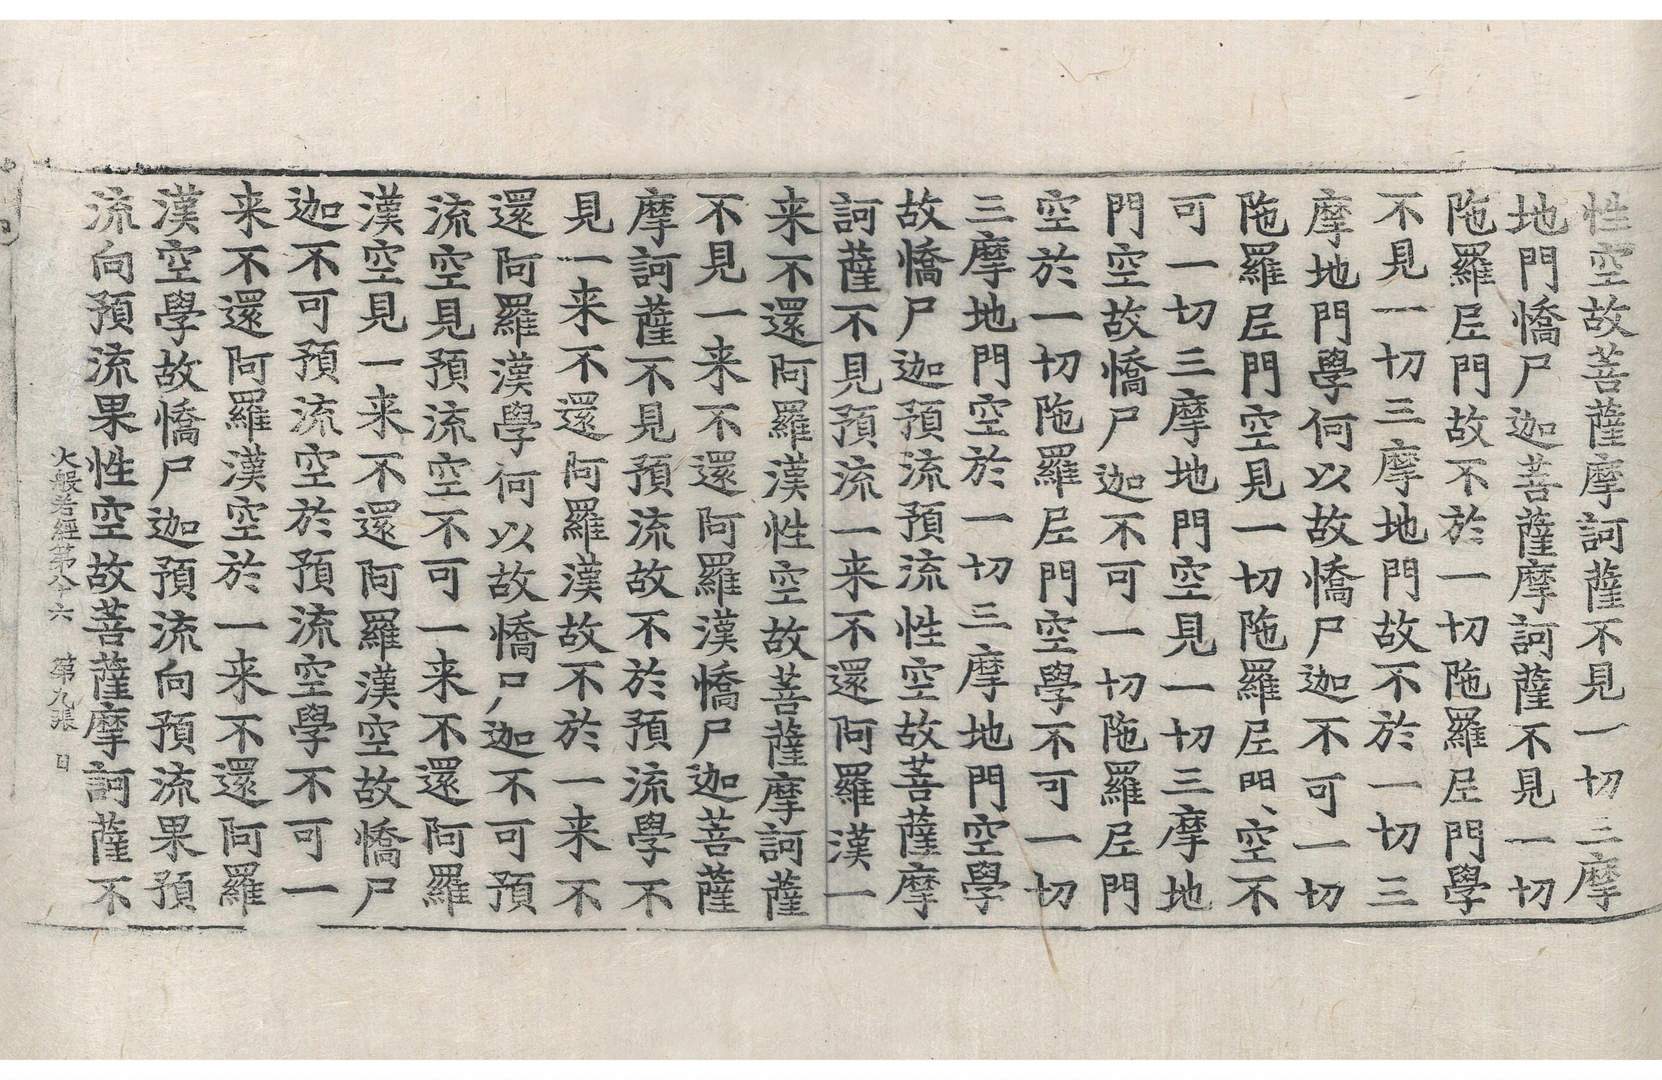 性空故菩薩摩訶薩不見一切三摩
地門憍尸迦菩薩摩訶薩不見一切
陁羅尼門故不於一切陁羅尼門學
不見一切三摩地門故不於一切三
摩地門學何以故憍尸迦不可一切
陁羅尼門空見一切陁羅尼門空不
可一切三摩地門空見一切三摩地
門空故憍尸迦不可一切陁羅尼門
空於一切陁羅尼門空學不可一切
三摩地門空於一切三摩地門空學
故憍尸迦預流預流性空故菩薩摩
訶薩不見預流一来不還阿羅漢一
来不還阿羅漢性空故菩薩摩訶薩
不見一来不還阿羅漢憍尸迦菩薩
摩訶薩不見預流故不於預流學不
見一来不還阿羅漢故不於一来不
還阿羅漢學何以故憍尸迦不可預
流空見預流空不可一来不還阿羅
漢空見一来不還阿羅漢空故憍尸
迦不可預流空於預流空學不可一
来不還阿羅漢空於一来不還阿羅
漢空學故憍尸迦預流向預流果預
流向預流果性空故菩薩摩訶薩不
大般若經第八十六 第九張 日